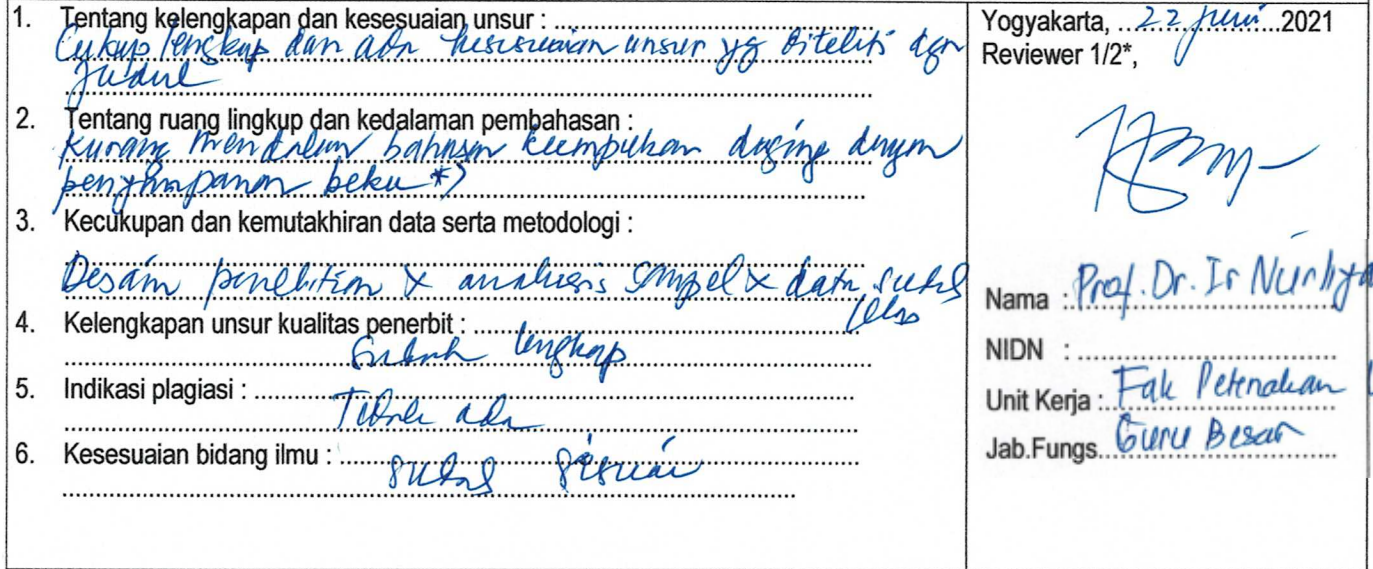 1. Tentang kelengkapan dan kesesuaian unsur :
Cukup lengkap dan ada kesesuaian unsur yg diteliti dgn
judul
2. Tentang ruang lingkup dan kedalaman pembahasan :
Kurang mendalam bahasan keempukan daging dengan
penyimpanan beku *)
3. Kecukupan dan kemutakhiran data serta metodologi :
Desain penelitian & analisis sampel & data sudah
jelas
4. Kelengkapan unsur kualitas penerbit :
Sudah lengkap
5. Indikasi plagiasi :
Tidak ada
6. Kesesuaian bidang ilmu :
sudah sesuai
Yogyakarta, 22 Juni 2021
Reviewer 1/2*,
Nama : Prof. Dr. Ir
NIDN :
Unit Kerja : Fak Peternakan
Jab.Fungs. Guru Besar